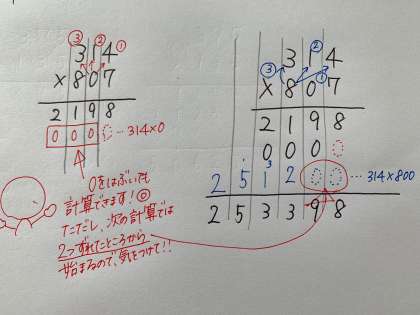 ③ ② ①
314
×807
2198
000 …314×0
0をはぶいても
計算できます！☺
ただし、次の計算では
2つずれたところから
始まるので、気をつけて!!
② 
③ ①
314
×807
2198
000
3
2512 …314×800
253398